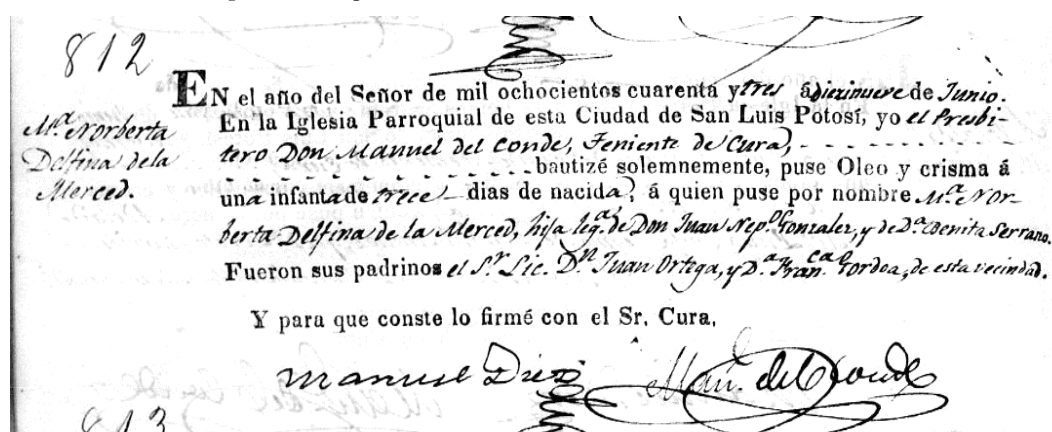 812
EN el año del Señor de mil ochocientos cuarenta y tres á diezinueve de Junio.
En la Iglesia Parroquial de esta Ciudad de San Luis Potosí, yo el Presbi-
tero Don Manuel del Conde, Teniente de Cura,
bautizé solemnemente, puse Oleo y crisma á
una infanta de trece dias de nacida, á quien puse por nombre Mª. Nor-
berta Delfina de la Merced, hija legª. de Don Juan Nepº. Gonzalez, y de Dª. Benita Serrano.
Fueron sus padrinos el Sʳ. Lic. Dⁿ. Juan Ortega, y Dª. Franᶜᵃ. Gordoa, de esta vecindad.
Y para que conste lo firmé con el Sr. Cura.
Mª. Norberta
Delfina de la
Merced.
Manuel Diez
Manˡ. del Conde
813